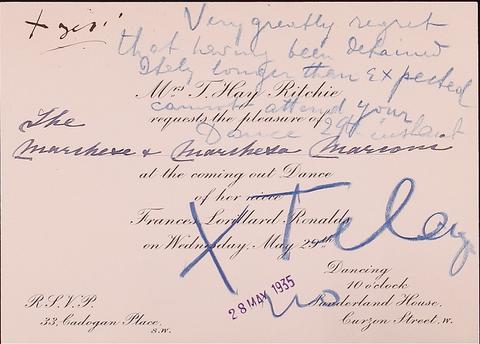 Very greatly regret
that having been detained
Italy longer than expected
Mrs T. Hay Ritchie
cannot attend your
requests the pleasure of
Dance 29th instant
The
Marchese & Marchesa Marconi
at the coming out Dance
of her niece
Frances Lorillard Ronalds
on Wednesday, May 29th
X Teleg
Dancing
28 MAY 1935
10 o'clock
R.S.V.P.
Sunderland House,
33, Cadogan Place,
Curzon Street, W.
S.W.